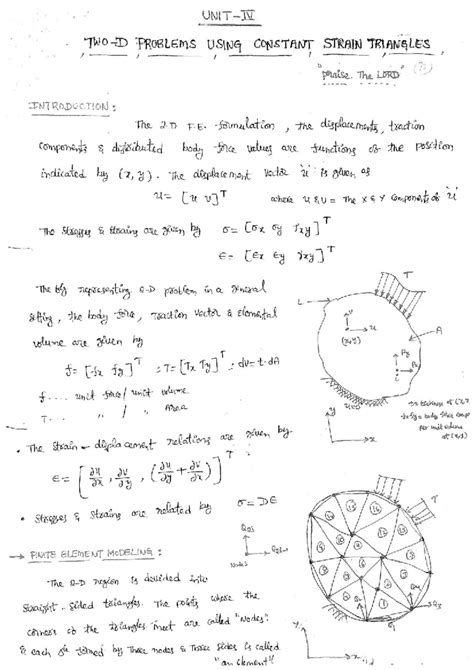 UNIT-IV
TWO-D PROBLEMS USING CONSTANT STRAIN TRIANGLES
"Praise The LORD"
INTRODUCTION :
The 2-D F.E. formulation, the displacements, traction
components & distributed body force values are functions of the position
indicated by (x, y). The displacement vector 'u' is given as
u = [u v]^T where u & v = The x & y components of 'u'
The stresses & strains are given by σ = [σx σy τxy]^T
ϵ = [ϵx ϵy γxy]^T
The fig representing 2-D problem in a general
setting, the body force, traction vector & elemental
volume are given by
f = [fx fy]^T ; T = [Tx Ty]^T ; dv = t·dA
f.... unit force/unit volume
T... " / " Area
• The strain - displacement relations are given by
ϵ = [∂u/∂x, ∂v/∂y, (∂u/∂y + ∂v/∂x)]^T
• Stresses & Strains are related by σ = Dϵ
→ FINITE ELEMENT MODELING :
The 2-D region is divided into
straight-sided triangles. The points where the
corners of the triangles meet are called "Nodes".
& each formed by three nodes & three sides is called
"an element"
L
T
v
u
(x,y)
A
u=0
y
x
per unit volume
at (x,y)
T